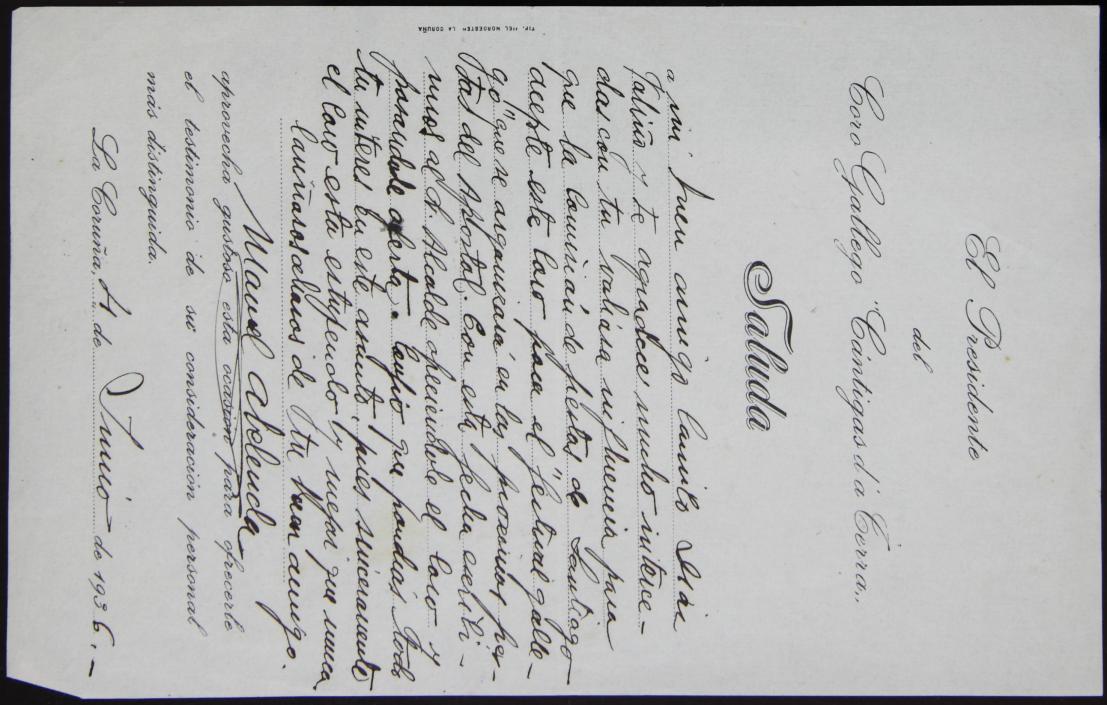 El Presidente
del
Coro Gallego "Cántigas d'a Terra"
Saluda
a mi buen amigo Camilo Díaz
Baliño y te agradece mucho interce-
das con tu valiosa influencia para
que la Comisión de fiestas de Santiago
acepte este Coro para el "festival galle-
go" que se organizará en las proximas fies-
tas del Apostol. Con esta fecha escribi-
mos al S. Alcalde ofreciendole el Coro y
pasandole oferta. Confío que pondrás todo
tu interes en este asunto, pues sinceramente
el Coro está estupendo y mejor que nunca
Cariñosos abrazos de tu buen amigo.
Manuel Abelenda
aprovecha gustoso esta ocasión para ofrecerle
el testimonio de su consideración personal
más distinguida.
La Coruña, 4 de Junio de 1936.-
TIP. "EL NOROESTE" LA CORUÑA